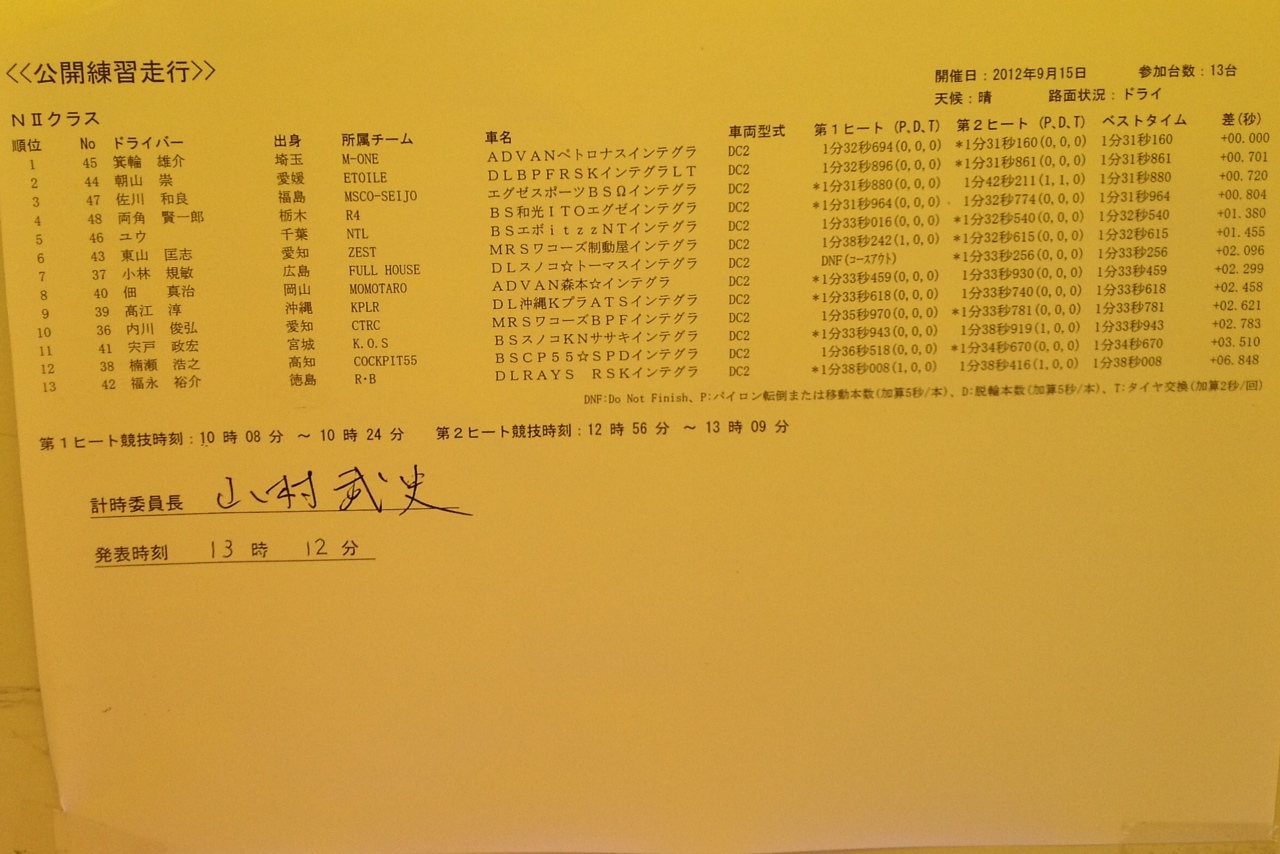 <<公開練習走行>>
開催日:2012年9月15日 参加台数:13台
天候:晴 路面状況:ドライ
NⅡクラス
順位 No ドライバー 出身 所属チーム 車名 車両型式 第1ヒート (P,D,T) 第2ヒート (P,D,T) ベストタイム 差(秒)
1 45 箕輪 雄介 埼玉 M-ONE ADVANペトロナスインテグラ DC2 1分32秒694(0,0,0) *1分31秒160(0,0,0) 1分31秒160 +00.000
2 44 朝山 崇 愛媛 ETOILE DLBPFRSKインテグラLT DC2 1分32秒896(0,0,0) *1分31秒861(0,0,0) 1分31秒861 +00.701
3 47 佐川 和良 福島 MSCO-SEIJO エグゼスポーツBSΩインテグラ DC2 *1分31秒880(0,0,0) 1分42秒211(1,1,0) 1分31秒880 +00.720
4 48 両角 賢一郎 栃木 R4 BS和光ITOエグゼインテグラ DC2 *1分31秒964(0,0,0) 1分32秒774(0,0,0) 1分31秒964 +00.804
5 46 ユウ 千葉 NTL BSエボitzzNTインテグラ DC2 1分33秒016(0,0,0) *1分32秒540(0,0,0) 1分32秒540 +01.380
6 43 東山 匡志 愛知 ZEST MRSワコーズ制動屋インテグラ DC2 1分38秒242(1,0,0) *1分32秒615(0,0,0) 1分32秒615 +01.455
7 37 小林 規敏 広島 FULL HOUSE DLスノコ☆トーマスインテグラ DC2 DNF(コースアウト) *1分33秒256(0,0,0) 1分33秒256 +02.096
8 40 佃 真治 岡山 MOMOTARO ADVAN森本☆インテグラ DC2 *1分33秒459(0,0,0) 1分33秒930(0,0,0) 1分33秒459 +02.299
9 39 髙江 淳 沖縄 KPLR DL沖縄KプラATSインテグラ DC2 *1分33秒618(0,0,0) 1分33秒740(0,0,0) 1分33秒618 +02.458
10 36 内川 俊弘 愛知 CTRC MRSワコーズBPFインテグラ DC2 1分35秒970(0,0,0) *1分33秒781(0,0,0) 1分33秒781 +02.621
11 41 宍戸 政宏 宮城 K.O.S BSスノコKNササキインテグラ DC2 *1分33秒943(0,0,0) 1分38秒919(1,0,0) 1分33秒943 +02.783
12 38 楠瀬 浩之 高知 COCKPIT55 BSCP55☆SPDインテグラ DC2 1分36秒518(0,0,0) *1分34秒670(0,0,0) 1分34秒670 +03.510
13 42 福永 裕介 徳島 R・B DLRAYS RSKインテグラ DC2 *1分38秒008(1,0,0) 1分38秒416(1,0,0) 1分38秒008 +06.848
DNF:Do Not Finish、P:パイロン転倒または移動本数(加算5秒/本)、D:脱輪本数(加算5秒/本)、T:タイヤ交換(加算2秒/回)
第1ヒート競技時刻:10 時 08 分 ~ 10 時 24 分 第2ヒート競技時刻:12 時 56 分 ~ 13 時 09 分
計時委員長 山村武史
発表時刻 13 時 12 分